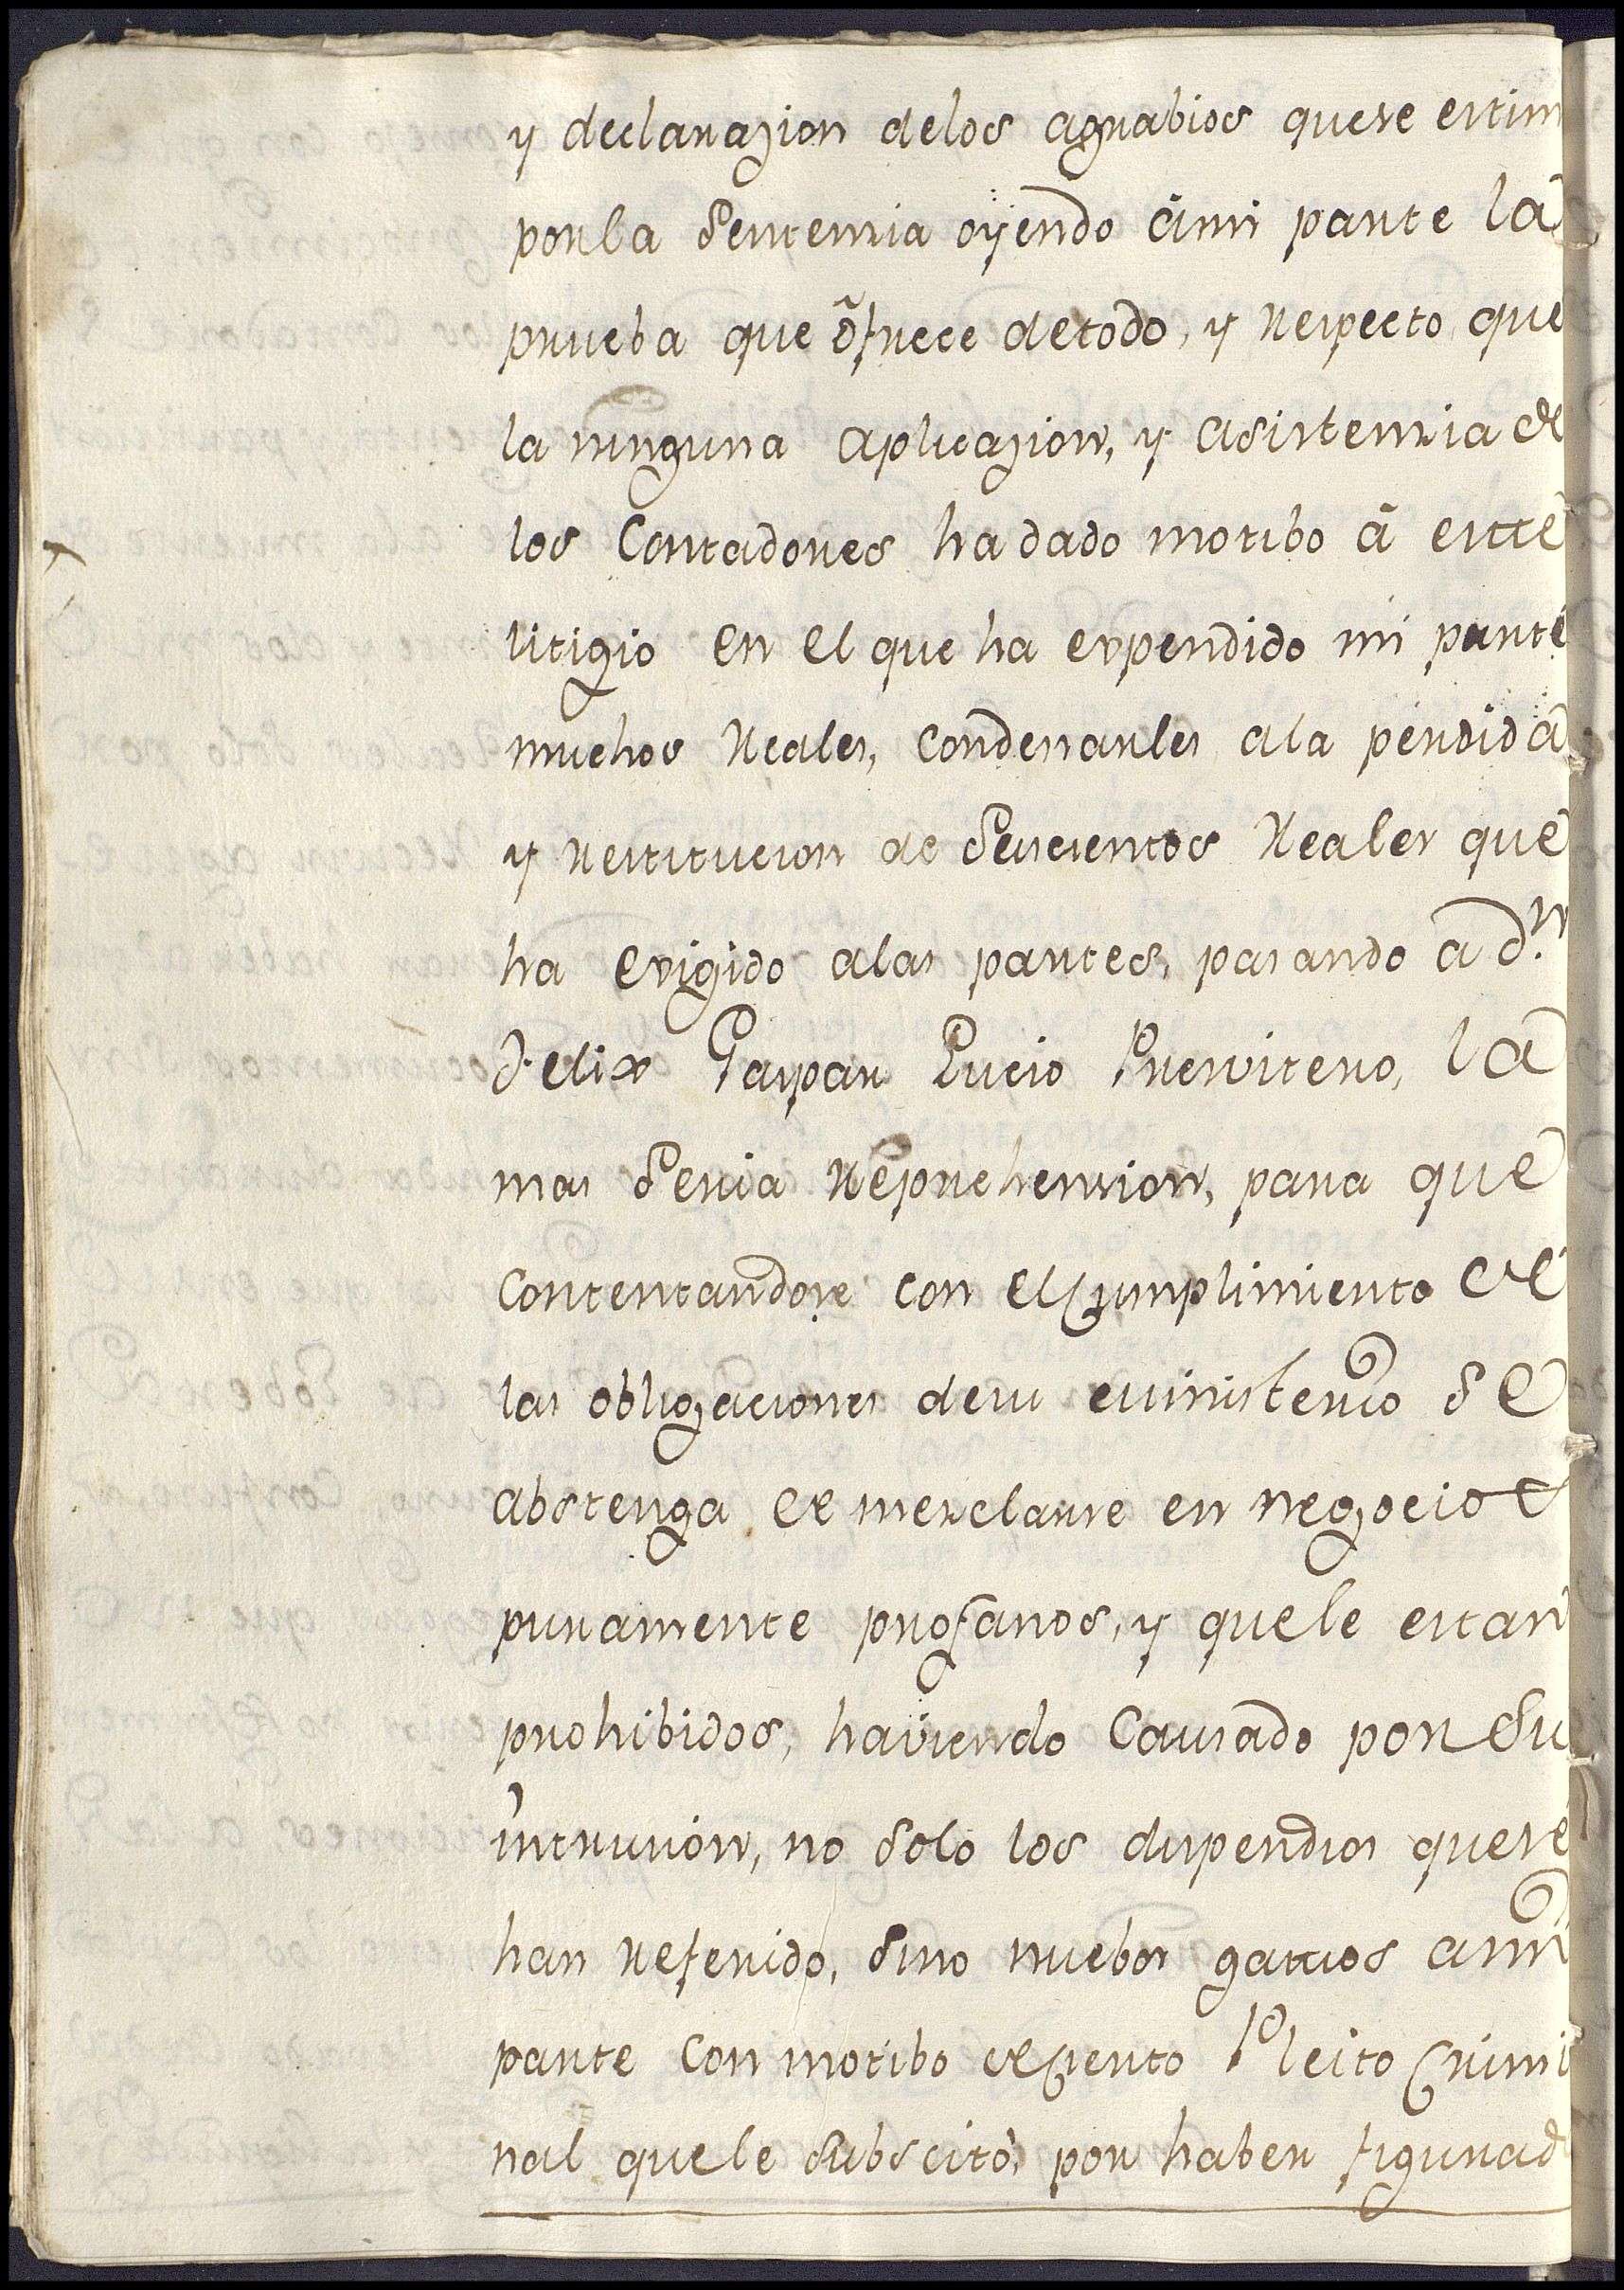 y declarazion delos agrabios quese estim
por la Sentenzia oyendo â mi parte la
prueba que ôfrece detodo, y Respecto que
la ninguna aplicazion, y asistenzia de
los Contadores ha dado motibo â este
litigio en el que ha expendido mi parte
muchos Reales, Condenarles ala perdida
y restitucion de Seiscientos Reales que
ha exigido alas partes, pasando a d.n
Felix Gaspar Lucio Presvitero, la
mas Seria Reprehension, para que
Contentandose con el Cumplimiento de
las obligaciones desu ministerio Se
abstenga de mezclarse en negocios
puramente profanos, y quele estan
prohibidos, haviendo Causado por Su
intrusion, no Solo los dispendios quese
han Referido, Sino nuebos gastos ami
parte Con motibo de Cierto Pleito Crimi
nal quele Subscitó, por haber figurad